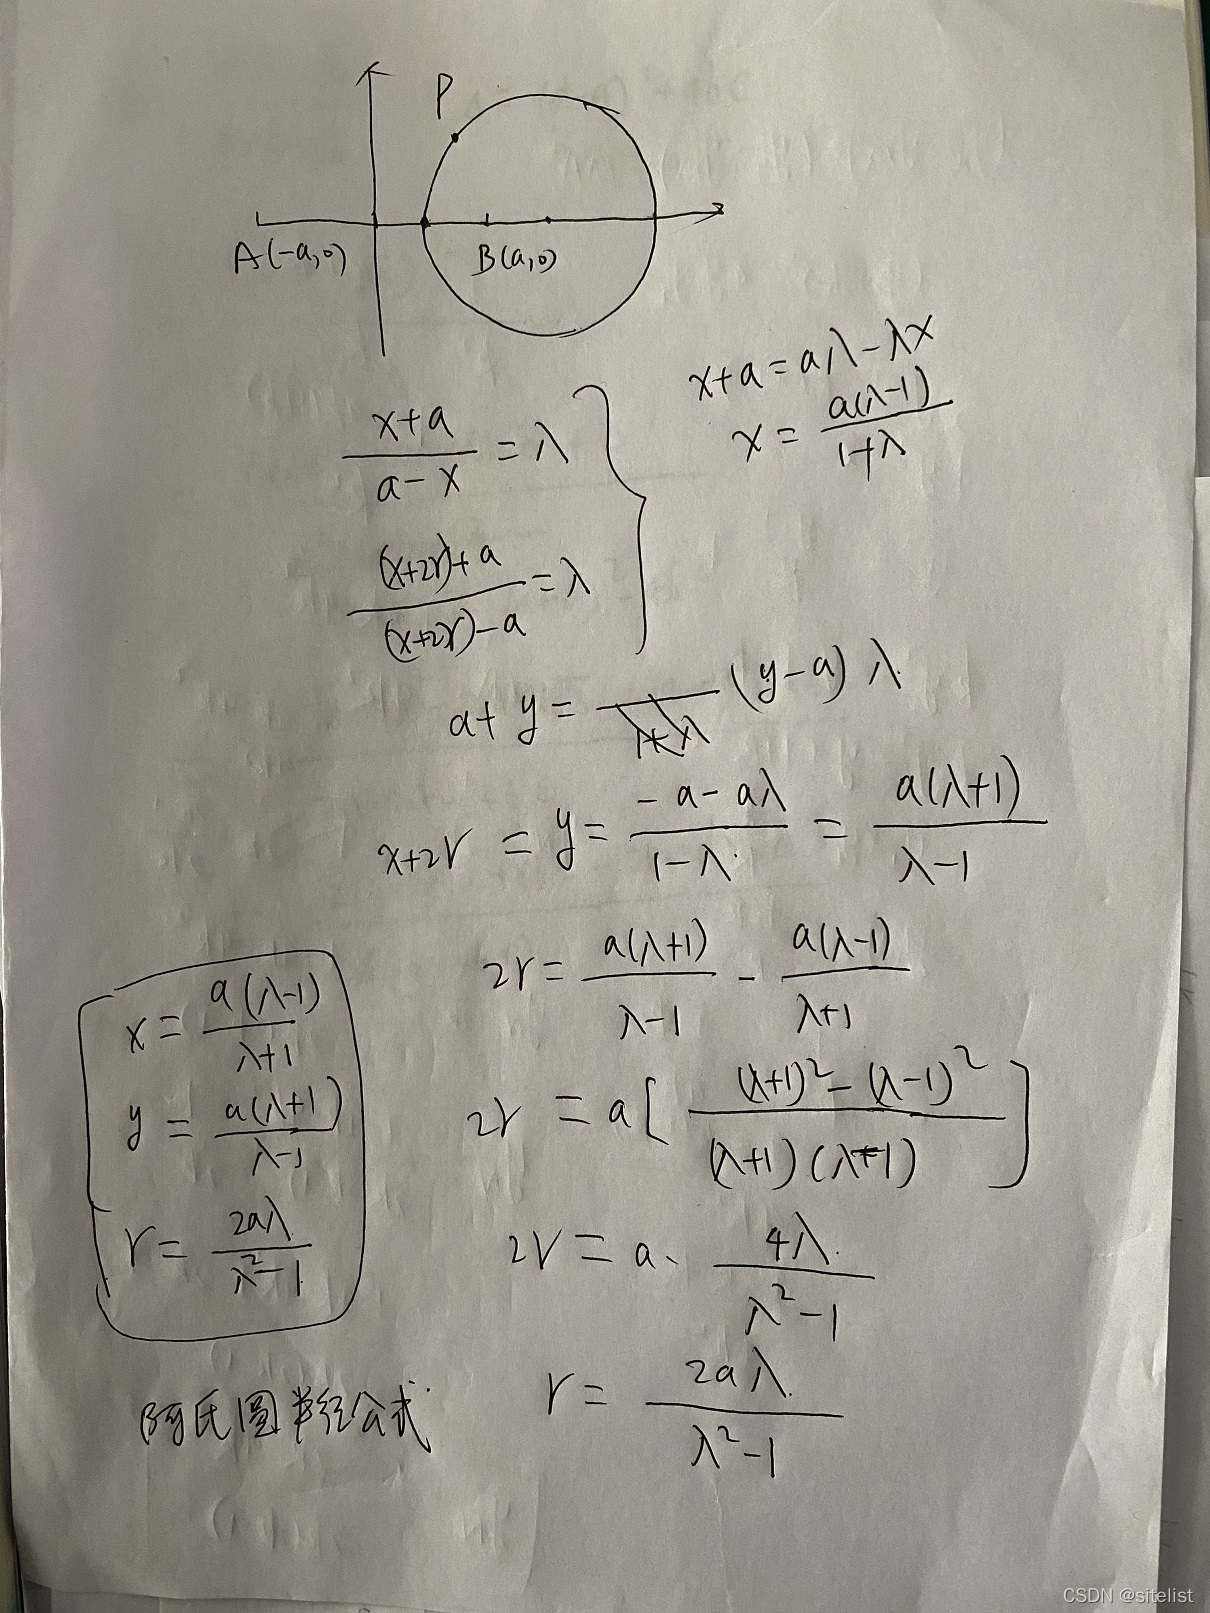 P
A(-a,0) B(a,0)
x+a=aλ-λx
x = a(λ-1) / 1+λ
x+a / a-x = λ
(x+2r)+a / (x+2r)-a = λ
a+y = (y-a)λ
x+2r = y = -a-aλ / 1-λ = a(λ+1) / λ-1
2r = a(λ+1) / λ-1 - a(λ-1) / λ+1
2r = a[ (λ+1)²-(λ-1)² / (λ+1)(λ-1) ]
2r = a· 4λ / λ²-1
r = 2aλ / λ²-1
x = a(λ-1) / λ+1
y = a(λ+1) / λ-1
r = 2aλ / λ²-1
阿氏圆半径公式
CSDN @sitelist